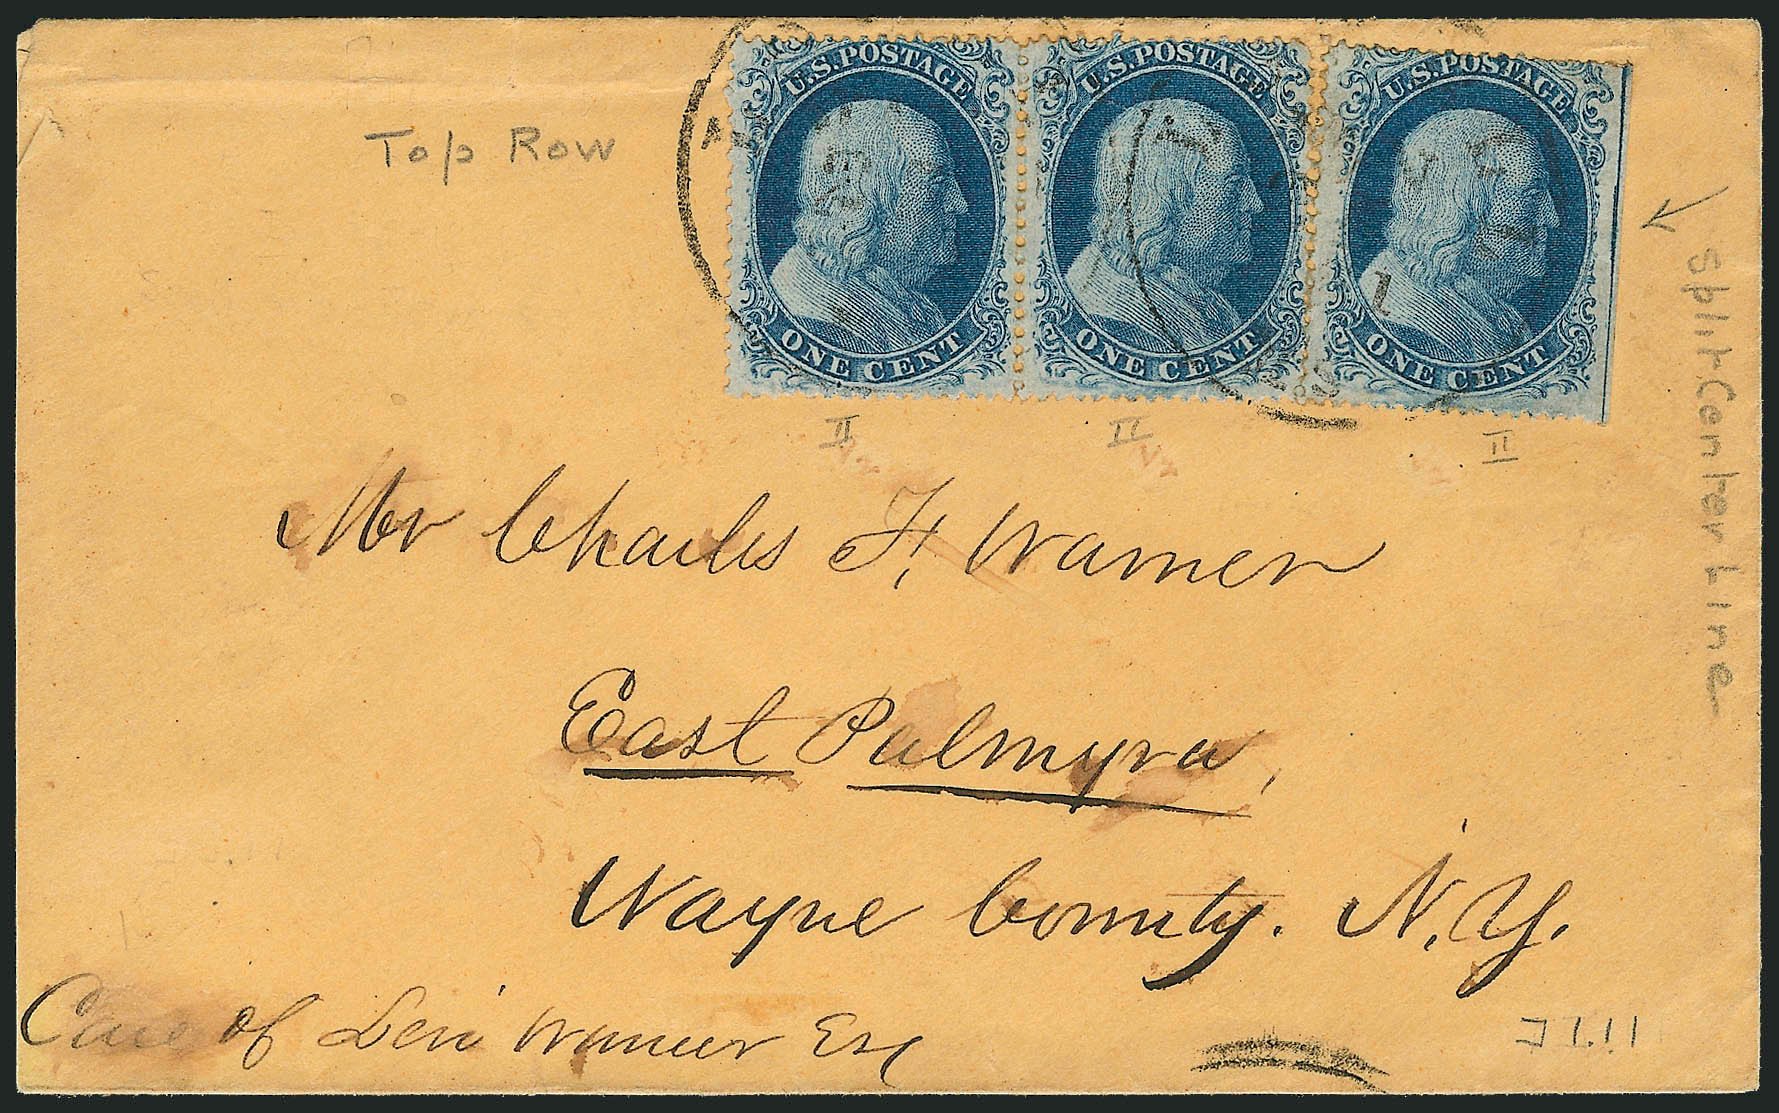 U.S. POSTAGE U.S. POSTAGE U.S. POSTAGE
ONE CENT ONE CENT ONE CENT
Top Row
II II II
Split Center Line
Mr Charles F, Warner
East Palmyra,
Wayne County. N.Y.
Care of Levi Warner Esq